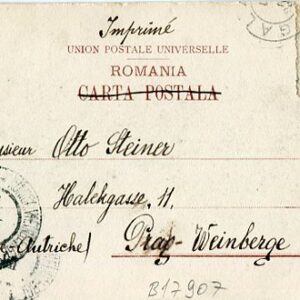 Imprimé
UNION POSTALE UNIVERSELLE
ROMANIA
CARTA POSTALA
sieur Otto Steiner
Halekgasse, 11.
e-Autriche) Prag-Weinberge
B17907